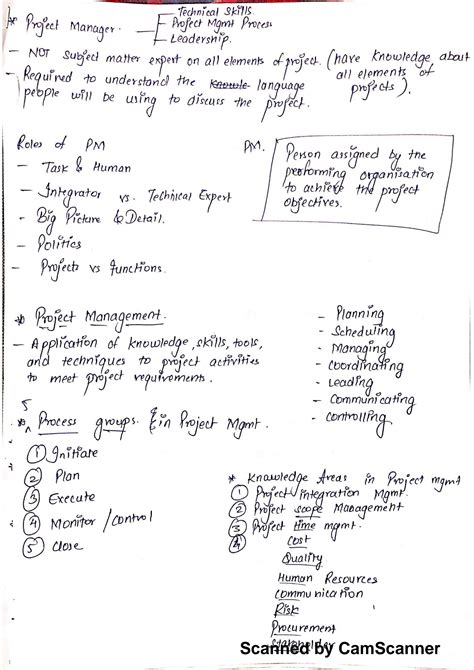 * Project Manager - Technical Skills.
- Project Mgmt Process
- Leadership.
- NOT Subject matter expert on all elements of project. (have knowledge about all elements of projects).
- Required to understand the language
people will be using to discuss the project.
Roles of PM
- Task & Human
- Integrator vs. Technical Expert
- Big Picture & Detail.
- Politics
- Projects vs functions.
PM.
Person assigned by the
performing organisation
to achieve the project
objectives.
* Project Management.
- Application of knowledge, skills, tools,
and techniques to project activities
to meet project requirements.
- Planning
- Scheduling
- Managing
- Coordinating
- Leading
- Communicating
- Controlling
5
* Process groups. in Project Mgmt.
① Initiate
② Plan
③ Execute
④ Monitor / Control
⑤ Close
* Knowledge Areas in Project mgmt
① Project integration Mgmt.
② Project scope Management
③ Project time mgmt.
④ Cost
Quality
Human Resources
Communication
Risk
Procurement
Stakeholder
Scanned by CamScanner